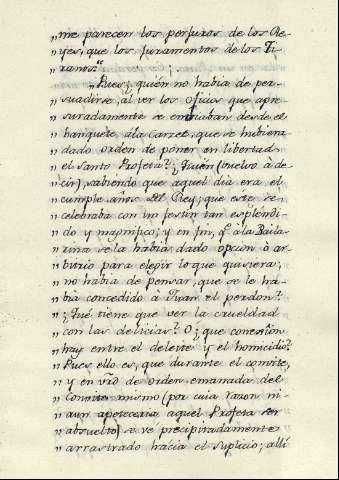 „me parecen los perjuros de los Re-
„yes, que los juramentos de los Ti-
„ranos.“
„Pues, quién no habia de per-
„suadirse, al ver los oficios que apre
„suradamente se embiaban desde el
„banquete à la Carzel, que se hubiera
„dado orden de poner en libertad
„el Santo Profeta? ¿Quién (buelvo à de-
„cir), sabiendo que aquel dia era el
„cumple años del Rey; que este se
„celebraba con un festin tan esplendi-
„do y magnifico; y en fin, q.e à la Baila-
„rina se la habia dado opcion à ar-
„bitrio para elejir lo que quisiera;
„no habia de pensar, que se le ha-
„bia concedido à Juan el perdon?
„¿Qué tiene que ver la crueldad
„con las delicias? O ¿que conexion
„hay entre el deleite y el homicidio?
„Pues ello es, que durante el convite,
„y en vrd de orden emanada del
„Convite mismo (por cuia razon ni
„aun apeteceria aquel Profeta ser
„absuelto) se vé precipitadamente
„arrastrado hácia el suplicio; allí